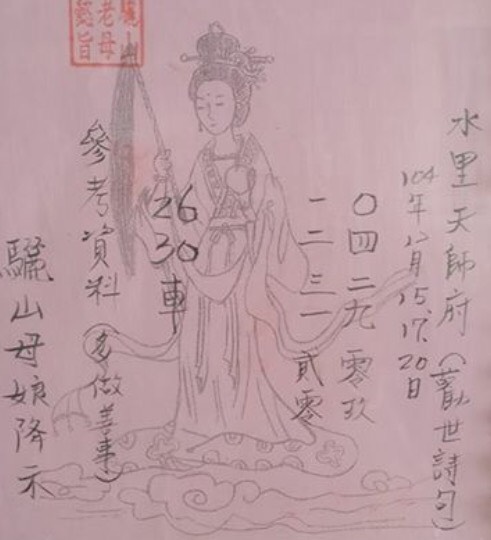 水里天師府(勸世詩句)
104年12月15.17.20日
〇四二九 零玖
一二三一 貳零
26
30
車
參考資料(多做善事)
驪山母娘降示
驪山
老母
懿旨